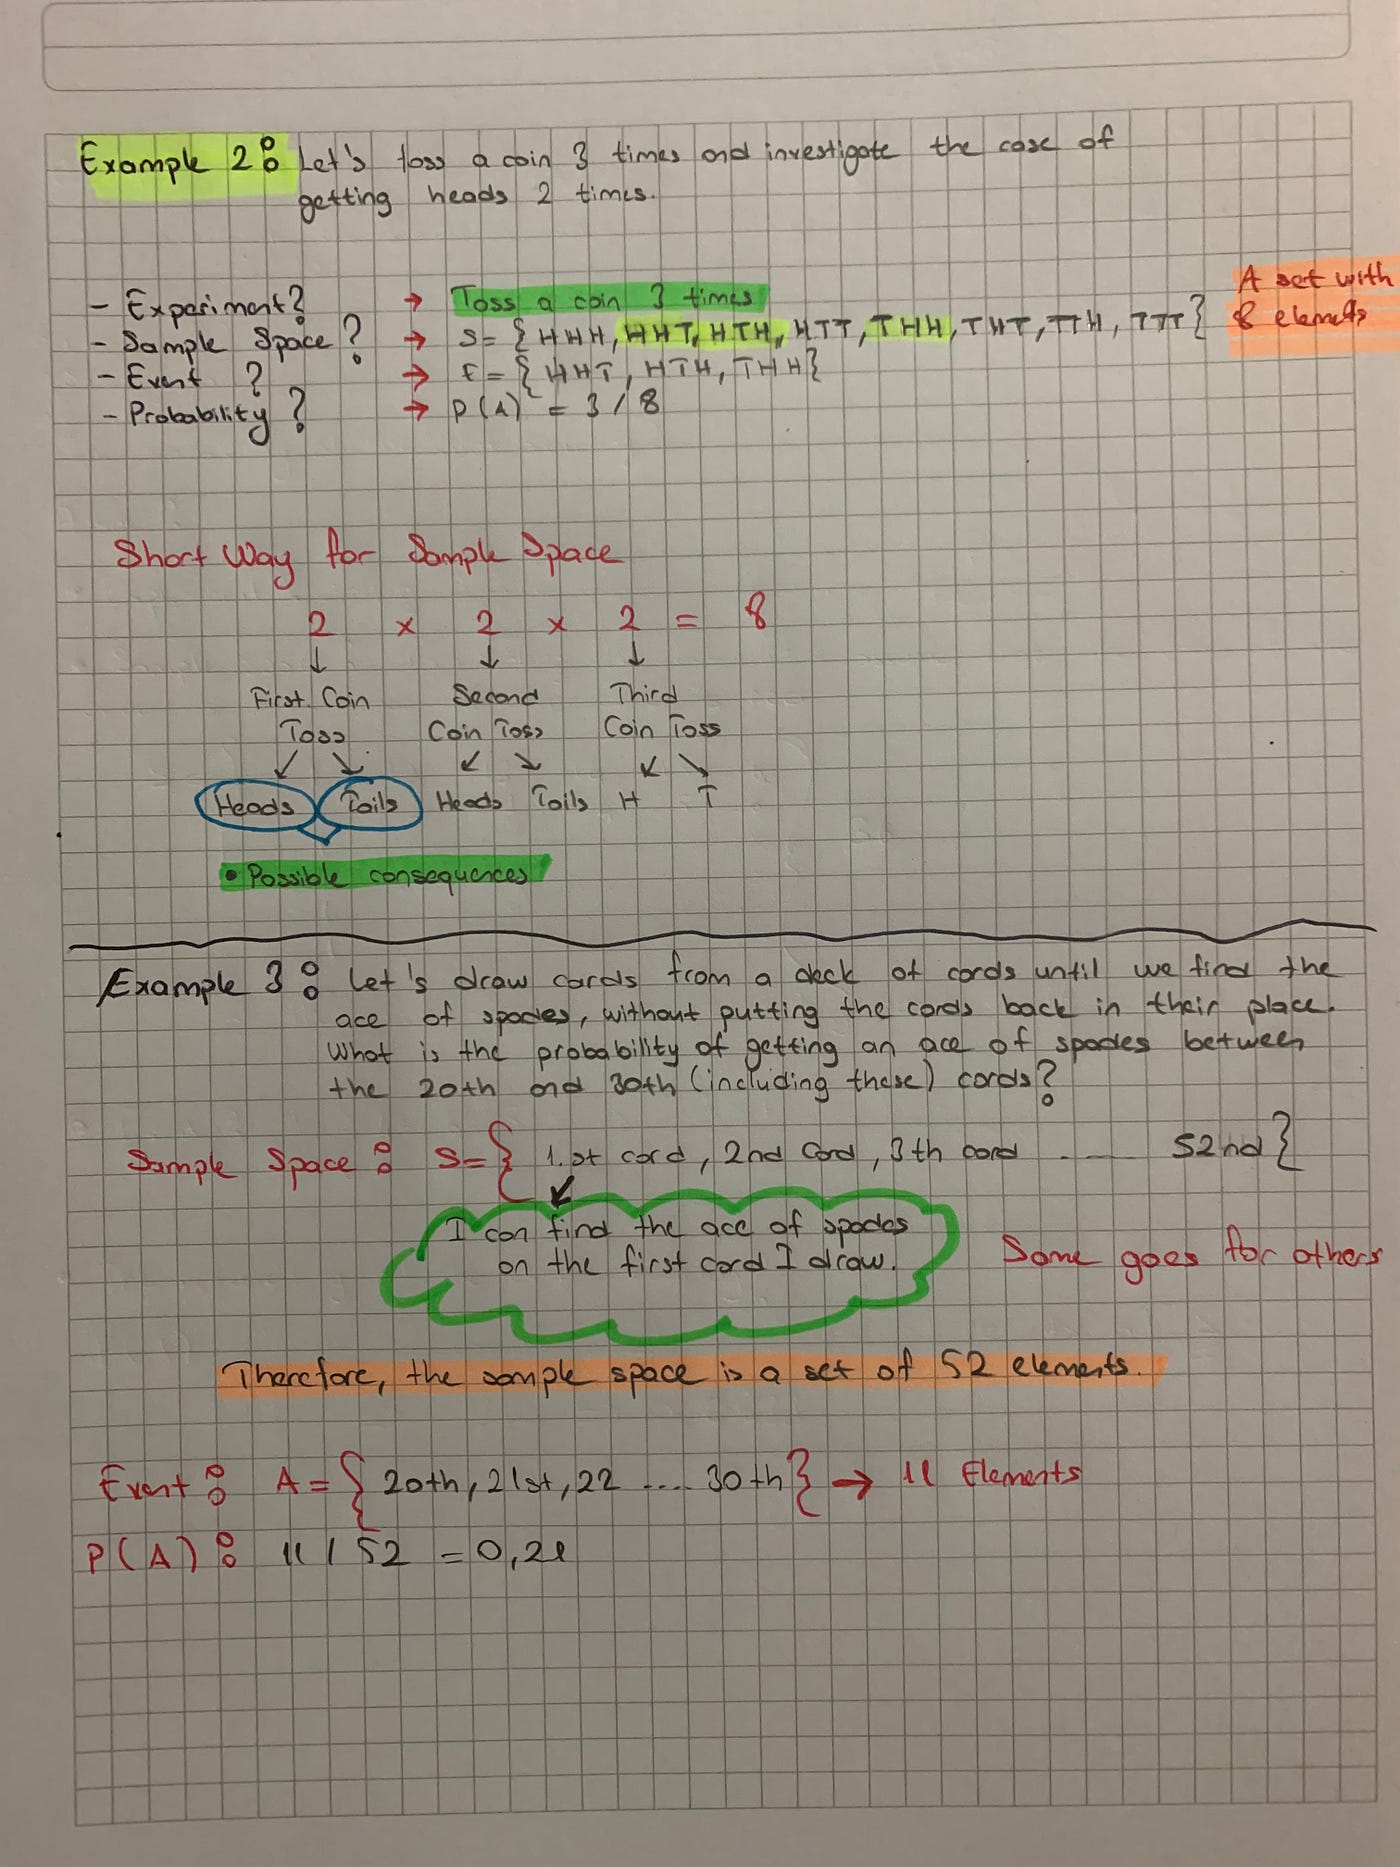 Example 2: Let's toss a coin 3 times and investigate the case of
getting heads 2 times.
- Experiment? → Toss a coin 3 times
- Sample Space? → S= { HHH, HHT, HTH, HTT, THH, THT, TTH, TTT}
A set with
8 elements
- Event ? → E= { HHT, HTH, THH}
- Probability? → P(A) = 3 / 8
Short Way for Sample Space
2 x 2 x 2 = 8
↓ ↓ ↓
First Coin Second Third
Toss Coin Toss Coin Toss
↙ ↘ ↙ ↘ ↙ ↘
Heads Tails Heads Tails H T
• Possible consequences
Example 3: Let's draw cards from a deck of cards until we find the
ace of spades, without putting the cards back in their place.
What is the probability of getting an ace of spades between
the 20th and 30th (including these) cards?
Sample Space: S= { 1.st card, 2nd Card, 3th card ..... 52nd}
I can find the ace of spades
on the first card I draw.
Same goes for others
Therefore, the sample space is a set of 52 elements.
Event: A= { 20th, 21st, 22 .... 30th} → 11 Elements
P(A): 11 / 52 = 0,21